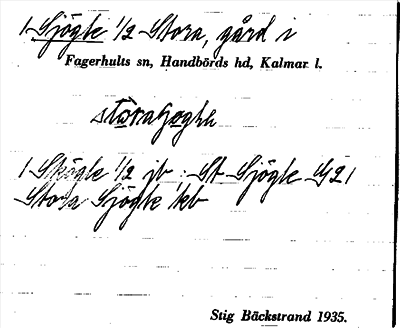 1 Sjögle 1/2 Stora, gård i
Fagerhults sn, Handbörds hd, Kalmar l.
1 Skögle 1/2 jb ; St Sjögle G21
Stora Sjögle kb
Stig Bäckstrand 1935.